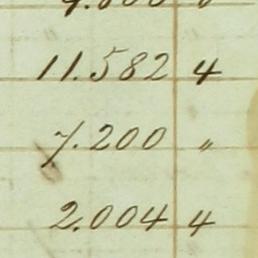 11.582 4
7.200 "
2.004 4